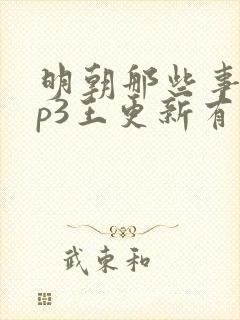 明朝那些事
p3王更新有
武東和